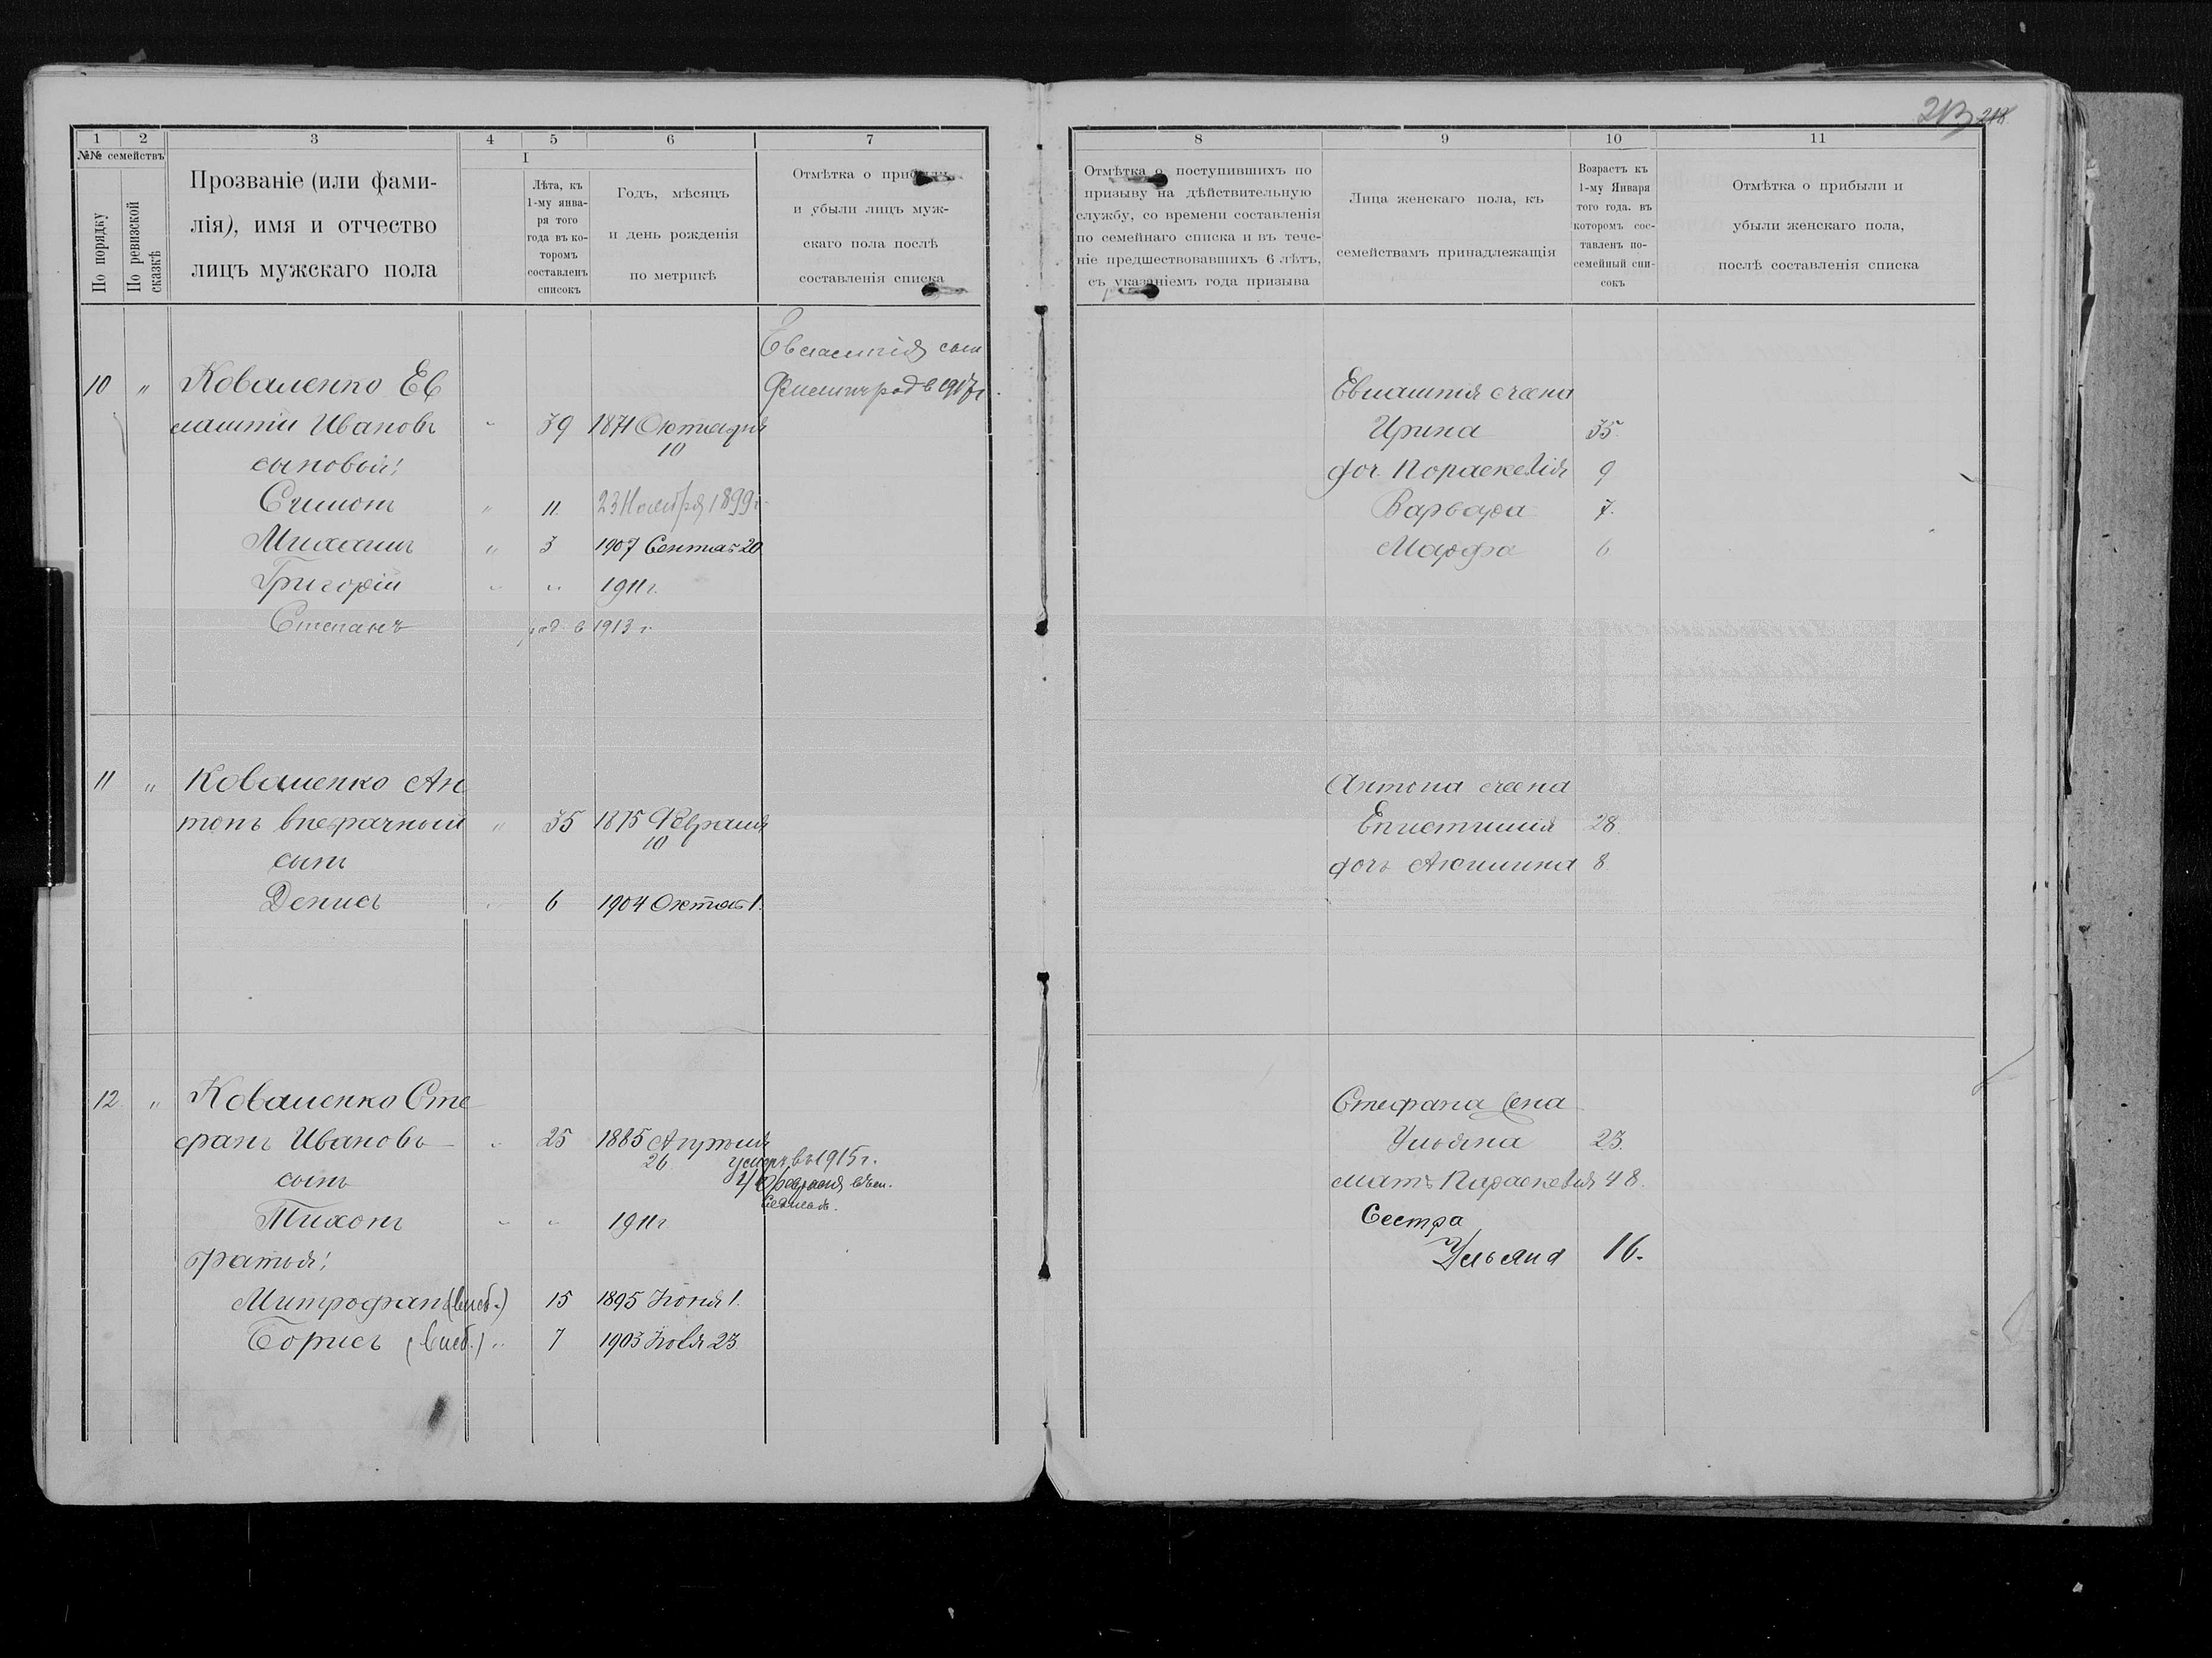 213 218
1 2 3 4 5 6 7
№№ семействъ
По порядку
По ревизской сказкѣ
Прозваніе (или фами-
лія), имя и отчество
лицъ мужскаго пола
I
Лѣта, къ
1-му янва-
ря того
года въ ко-
торомъ
составленъ
списокъ
Годъ, мѣсяцъ
и день рожденія
по метрикѣ
Отмѣтка о прибыли
и убыли лицъ муж-
скаго пола послѣ
составленія списка
Евлампія сын
род в 1917 г.
10 " Коваленко Ев
лампій Ивановъ " 39 1871 Октября
10
сыновья:
" 11 23 Ноября 1899 г.
Михаилъ " 3 1907 Сентяб 20
Григорій " " 1911 г.
Степанъ род в 1913 г.
11 " Коваленко Ан
тонъ внебрачный " 35 1875 Февраля
10
сынъ
Денисъ " 6 1904 Октяб 1.
12 " Коваленко Сте
фанъ Ивановъ " 25 1885 Апрѣля
26
умеръ въ 1915 г.
4 Февраля
сынъ
Тихонъ " " 1911 г
братья:
Митрофанъ (внеб.) 15 1895 Іюня 1.
Борисъ (внеб.) " 7 1903 Іюля 23
8 9 10 11
Отмѣтка о поступившихъ по
призыву на дѣйствительную
службу, со времени составленія
по семейнаго списка и въ тече-
ніе предшествовавшихъ 6 лѣтъ,
съ указаніемъ года призыва
Лица женскаго пола, къ
семействамъ принадлежащія
Возрастъ къ
1-му Января
того года. въ
которомъ сос-
тавленъ по-
семейный спи-
сокъ
Отмѣтка о прибыли и
убыли женскаго пола,
послѣ составленія списка
Евлампія жена
Ирина 35.
доч. Пораскевія 9
Варвара 7.
Марфа 6
Антона жена
Епистимія 28.
дочь Акилина 8
Стефана жена
Ульяна 23.
мать Параскевія 48.
Сестра
Ульяна 16.